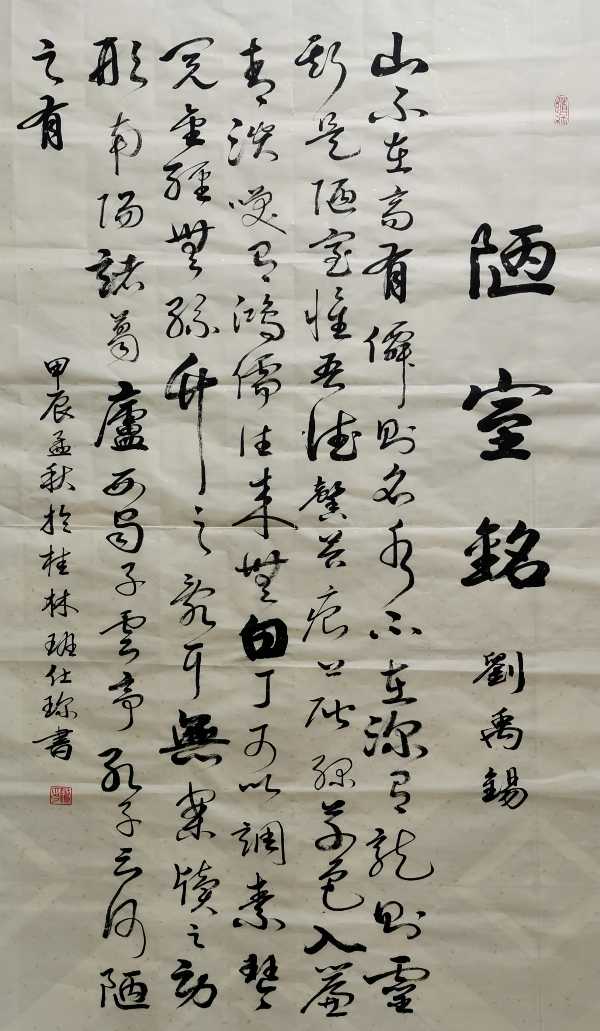 陋室銘
劉禹錫
山不在高有僊則名水不在深有龍則靈
斯是陋室惟吾德馨苔痕上階綠草色入簾
青談笑有鴻儒往來無白丁可以調素琴
閱金經無絲竹之亂耳無案牘之勞
形南陽諸葛廬西蜀子雲亭孔子云何陋
之有
甲辰孟秋於桂林班仕琛書